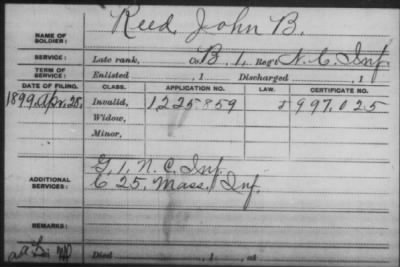 NAME OF SOLDIER: Reed, John B.
SERVICE: Late rank, Co. B, 1, Reg't N.C. Inf.
TERM OF SERVICE: Enlisted , 1 Discharged , 1
DATE OF FILING. CLASS. APPLICATION NO. LAW. CERTIFICATE NO.
1899, Apr. 28, Invalid, 1225859 997.025
Widow,
Minor,
ADDITIONAL SERVICES: G, 1, N.C. Inf.
C 25, Mass. Inf.
REMARKS:
Died , 1 , at